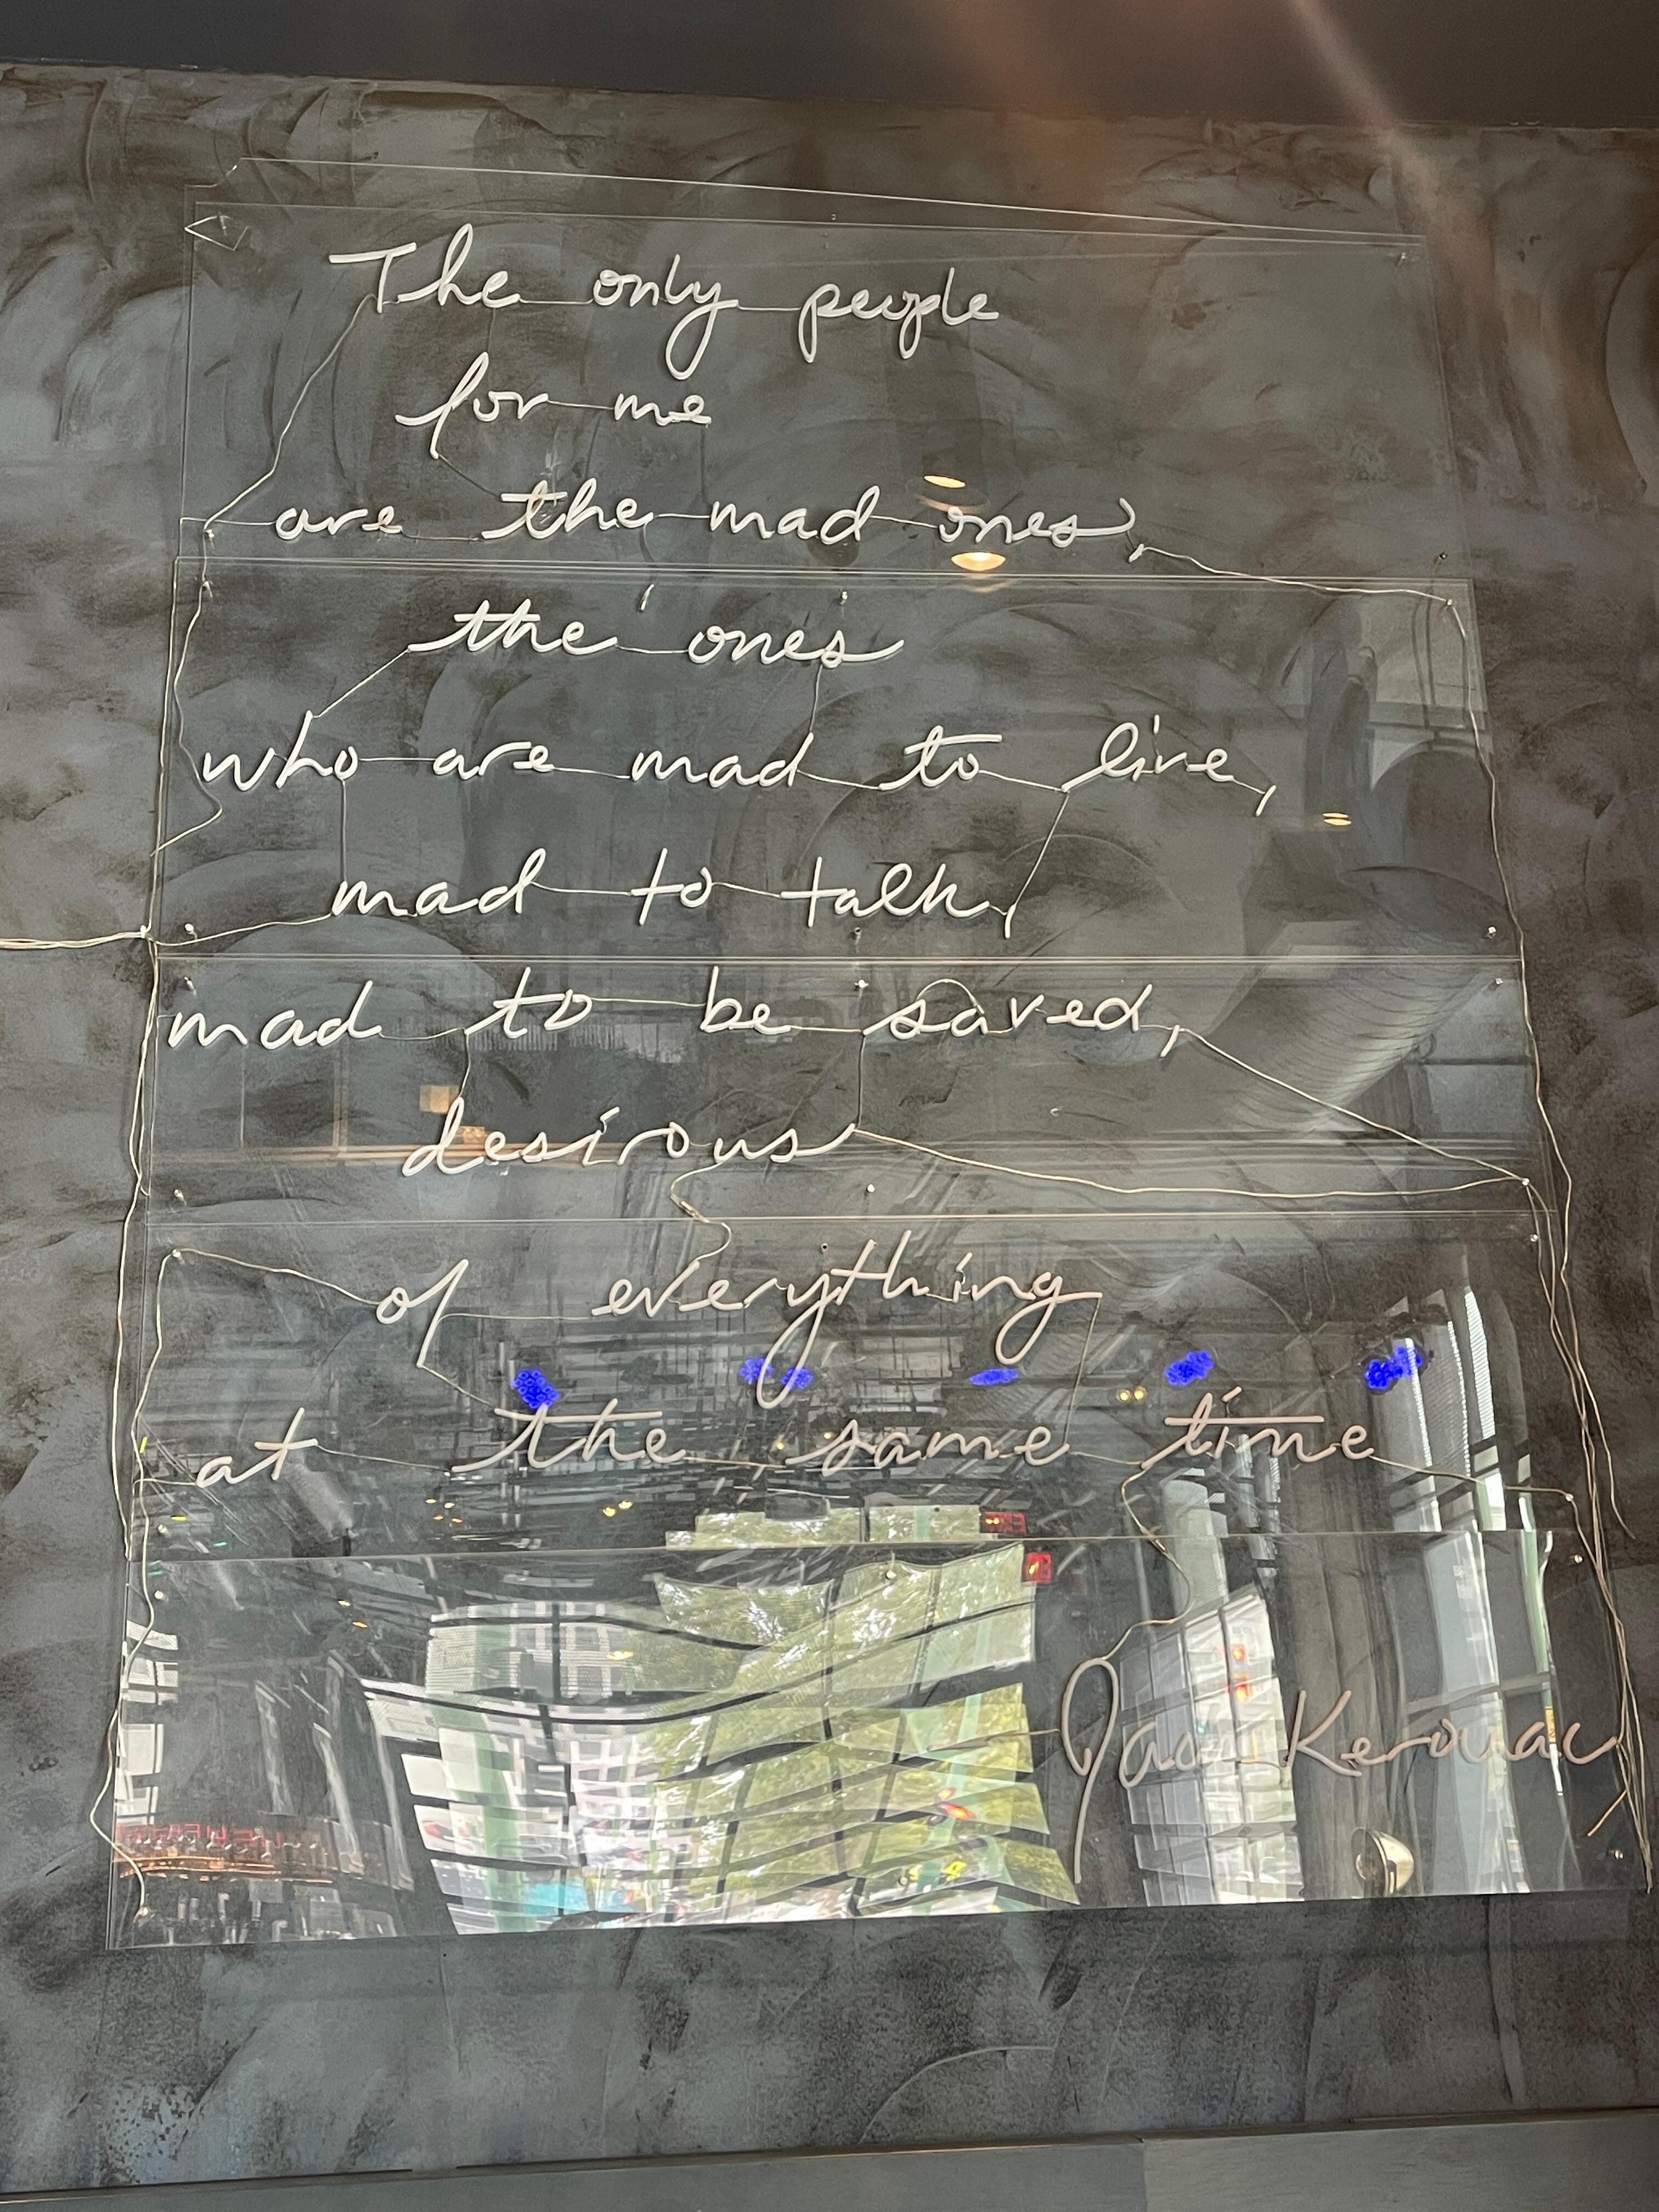 The only people
for me
are the mad ones,
the ones
who are mad to live,
mad to talk,
mad to be saved,
desirous
of everything
at the same time
Jack Kerouac